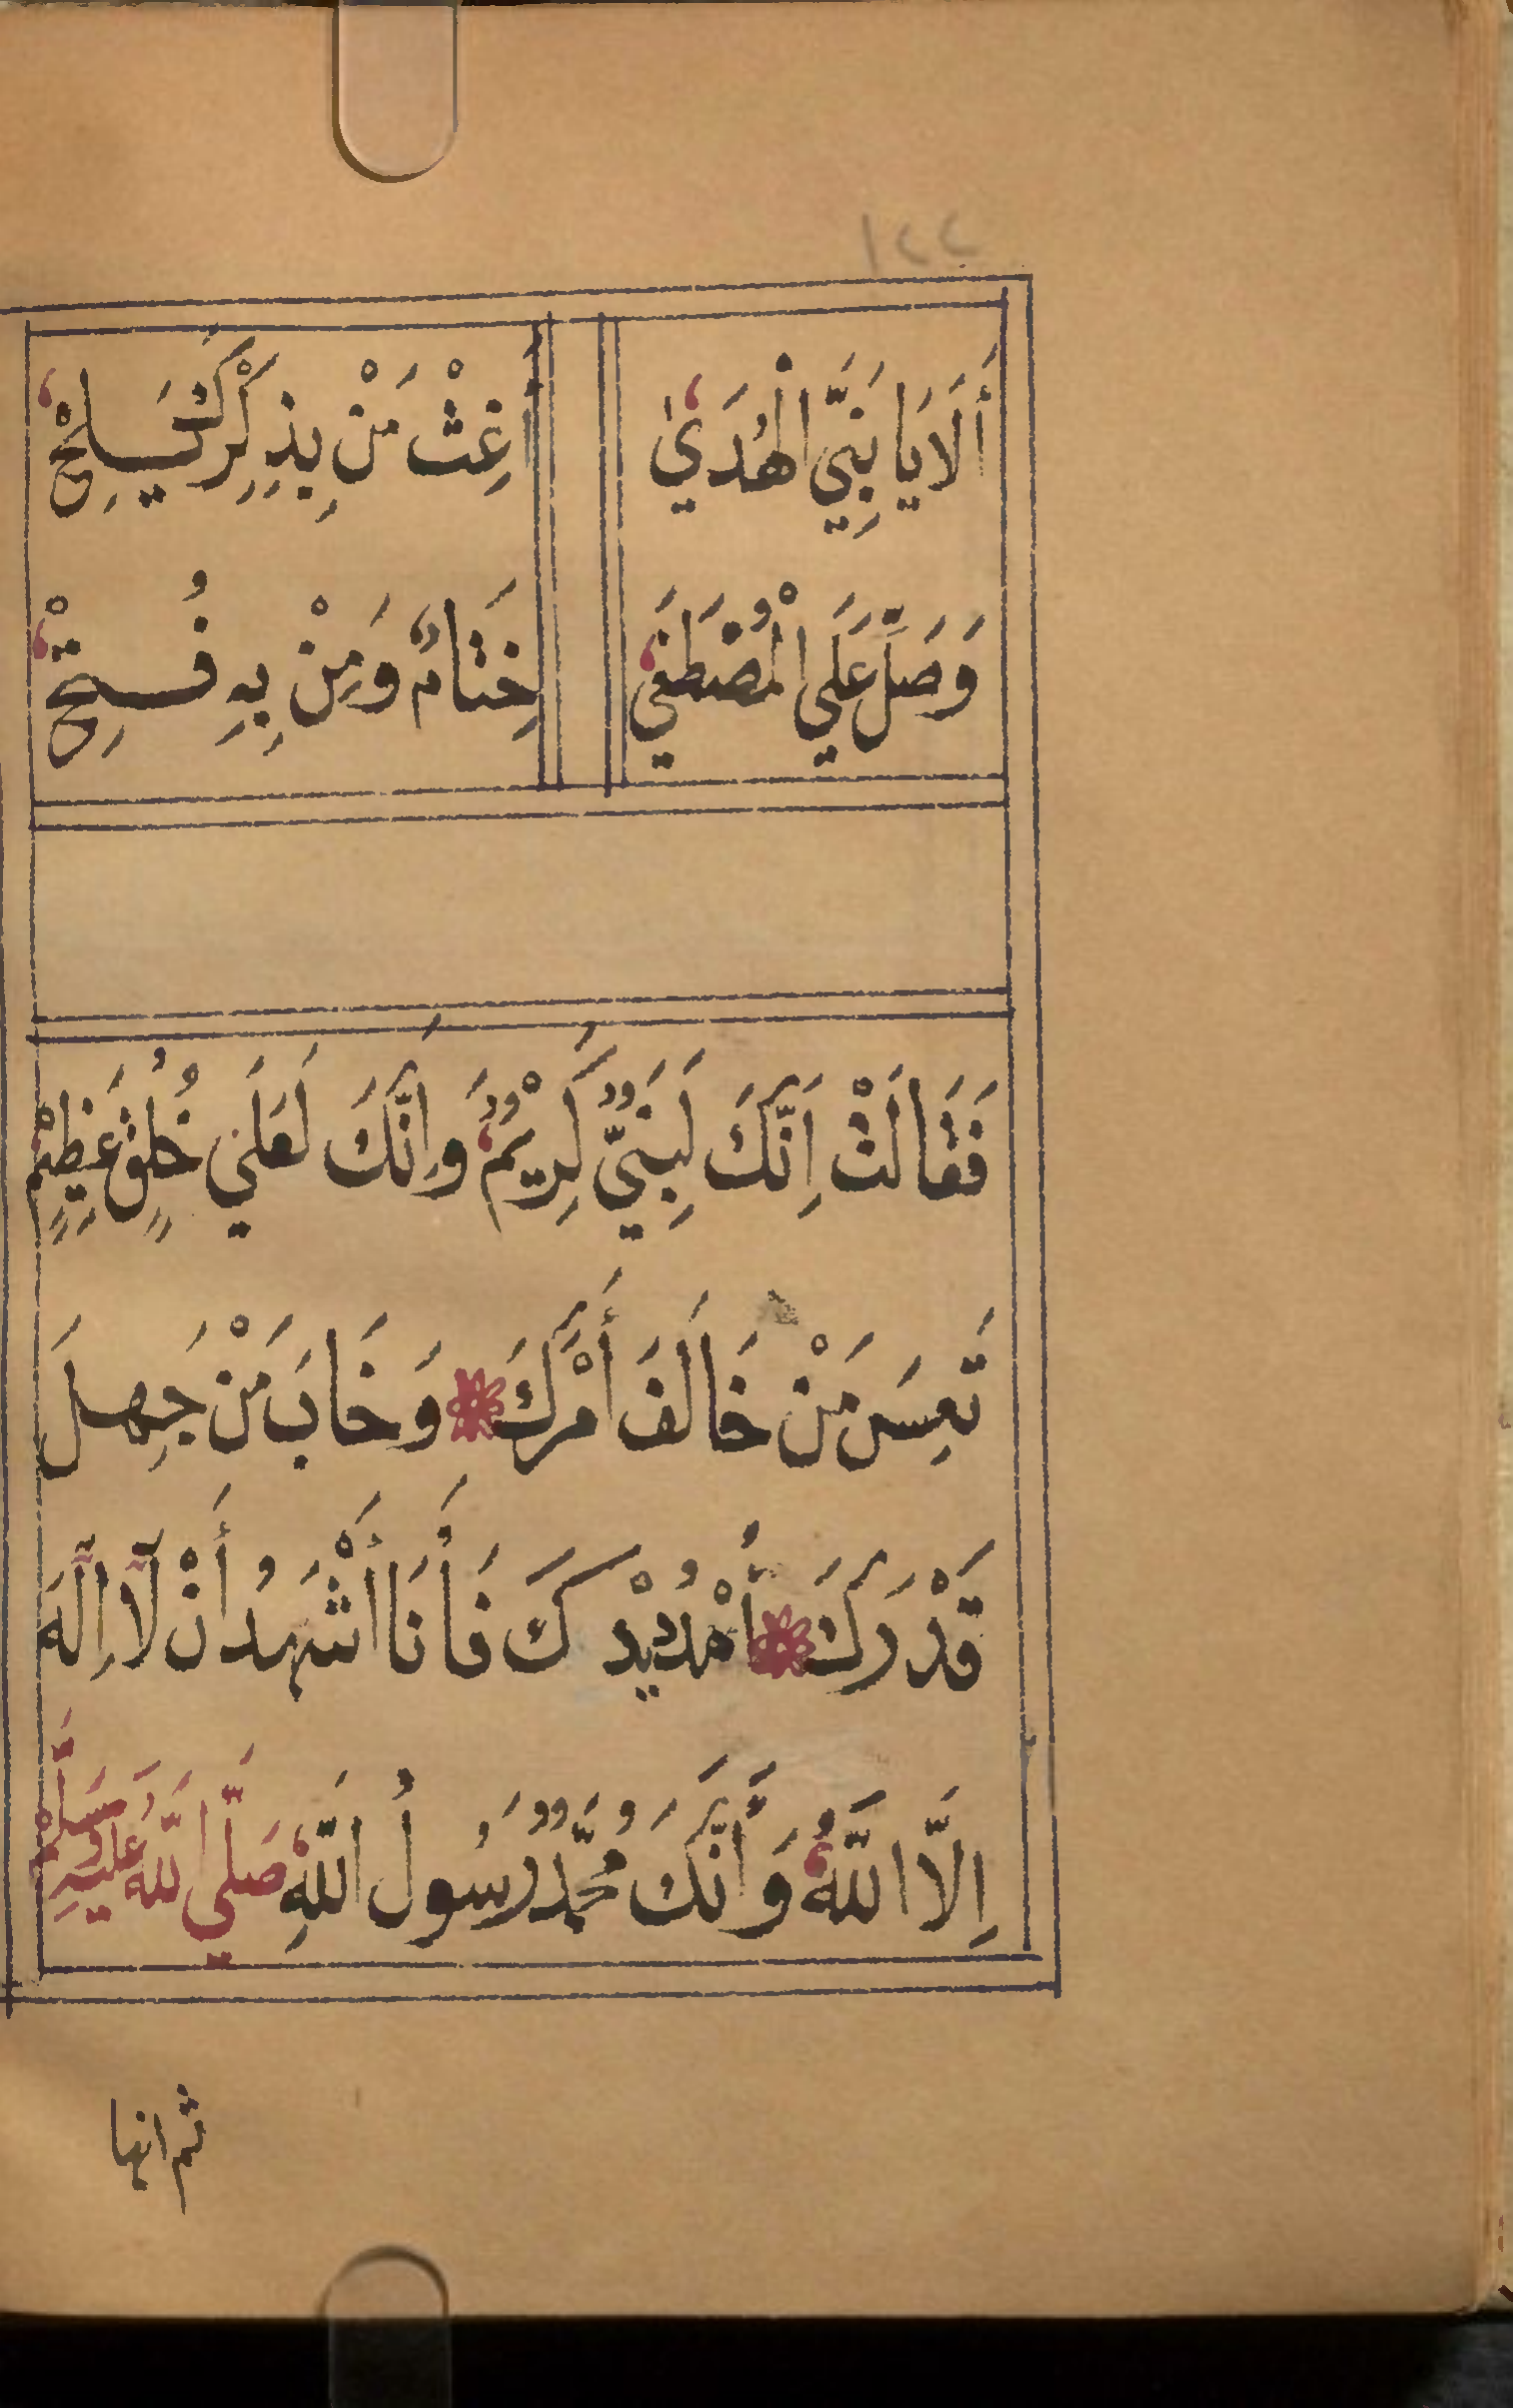 ١٢٢
أَلَا يَا نَبِيَّ الْهُدَيٰ اَغِثْ مَنْ بِذِكْرِكَ يَلِحْ
وَصَلِّ عَلَي الْمُصْطَفَي خِتَامٌ وَمِنْ بِهِ فُتِحْ
فَقَالَتْ اِنَّكَ لَنَبِيٌّ كَرِيْمٌ وَاِنَّكَ لَعَلَي خُلُقٍ عَظِيْمٍ
تَعِسَ مَنْ خَالَفَ أَمْرَكَ وَخَابَ مَنْ جَهِلَ
قَدْرَكَ أُمْدُدْ يَدَكَ فَأَنَا أَشْهَدُ أَنْ لَآ اِلٰهَ
اِلَّا اللّٰهُ وَأَنَّكَ مُحَمَّدٌ رَسُولُ اللّٰهِ صَلَّي اللّٰهُ عَلَيْهِ وَسَلَّمَ
ثم انها